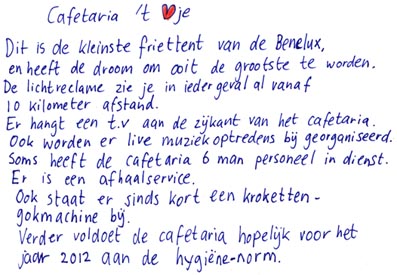 Cafetaria 't ❤je
Dit is de kleinste friettent van de Benelux,
en heeft de droom om ooit de grootste te worden.
De lichtreclame zie je in ieder geval al vanaf
10 kilometer afstand.
Er hangt een t.v aan de zijkant van het cafetaria.
Ook worden er live muziekoptredens bij georganiseerd.
Soms heeft de cafetaria 6 man personeel in dienst.
Er is een afhaalservice.
Ook staat er sinds kort een kroketten-
gokmachine bij.
Verder voldoet de cafetaria hopelijk voor het
jaar 2012 aan de hygiëne-norm.